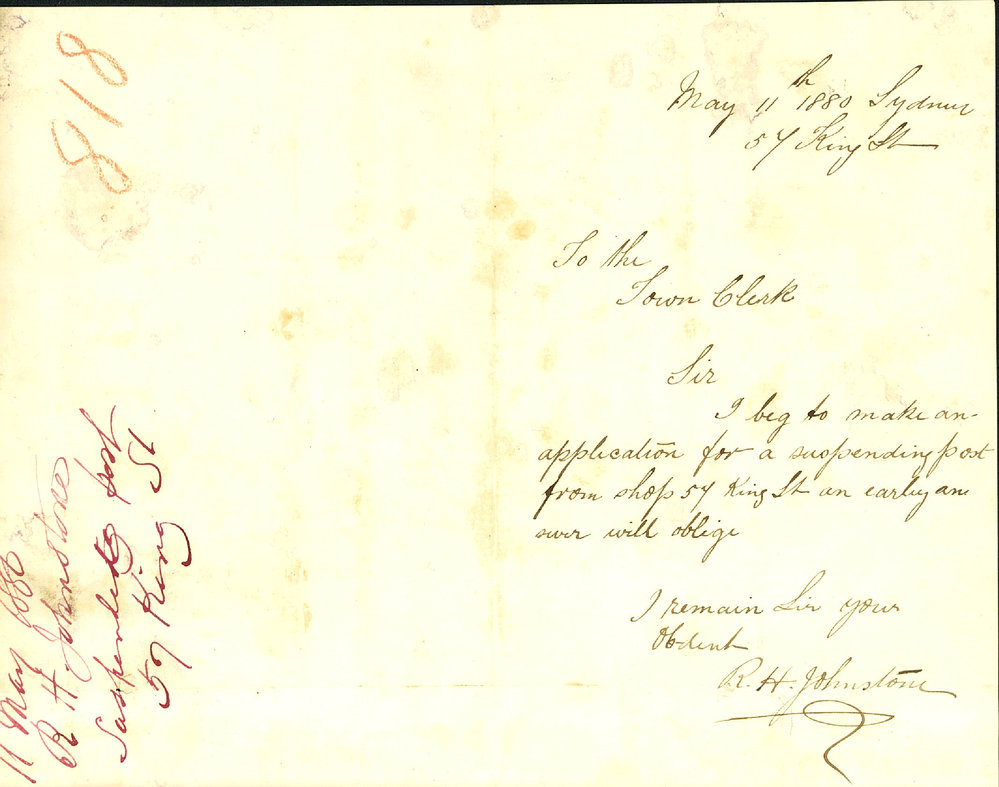 818
11 May 1880
R H Johnstone
Suspending post
57 King St
May 11th 1880 Sydney
57 King St
To the
Town Clerk
Sir
I beg to make an
application for a suspending post
from shop 57 King St an earley ans
swer will oblige
I remain Sir your
Obdent
R. H. Johnstone